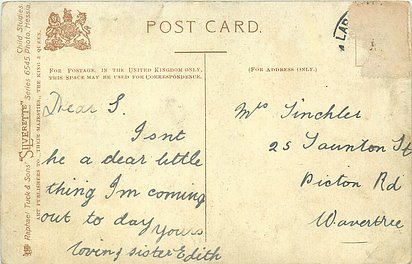 POST CARD.
FOR POSTAGE, IN THE UNITED KINGDOM ONLY,
THIS SPACE MAY BE USED FOR CORRESPONDENCE.
(FOR ADDRESS ONLY.)
Raphael Tuck & Sons' "SILVERETTE" Series 6545 Photo Hessia. Child Studies.
ART PUBLISHERS TO THEIR MAJESTIES, THE KING & QUEEN.
Dear S.
Isnt
he a dear little
thing Im coming
out to day yours
loving sister Edith
Mrs Tinchler
25 Taunton St
Picton Rd
Wavertree